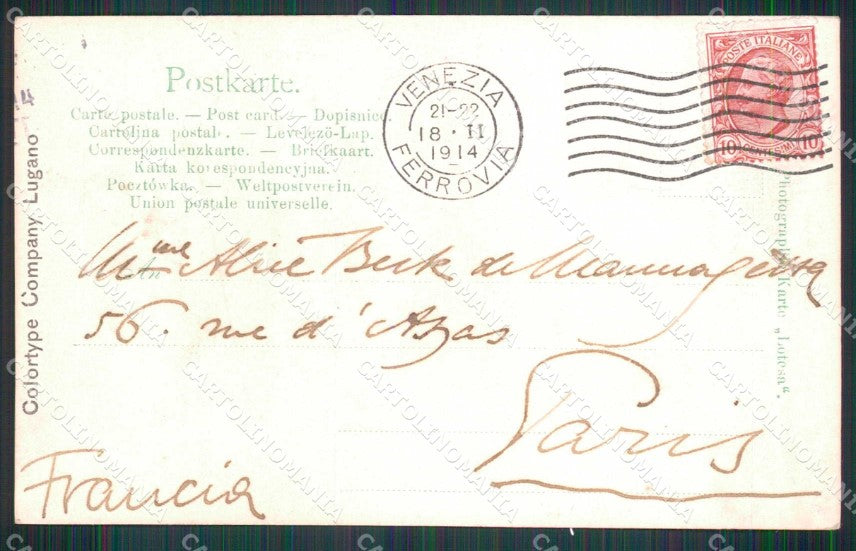 Postkarte.
Carte postale. — Post card. — Dopisnice
Cartolina postale. — Levelező-Lap.
Correspondenzkarte. — Briefkaart.
Karta korespondencyjna.
Pocztówka. — Weltpostverein.
Union postale universelle.
VENEZIA
21-22
18 • II
1914
FERROVIA
POSTE ITALIANE
10 CENTESIMI 10
Colortype Company Lugano
Photographie-Karte „Lotesa“.
An
Mme Alice Beck de
56. rue d'
Paris
Francia
CARTOLINOMANIA